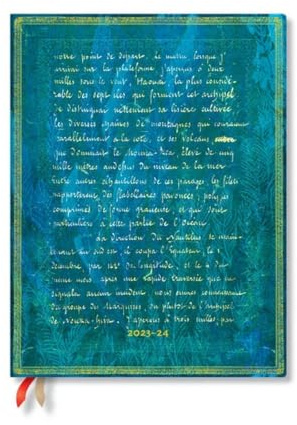 notre point de départ. Le matin, lorsque j'
arrivai sur la plateforme j'aperçus, à deux
milles sous le vent, Haouaï, la plus considé-
rable des sept îles qui forment cet archipel
je distinguai nettement sa lisière cultivée,
les diverses chaînes de montagnes qui couraient
parallèlement à la côte, et ses volcans
que dominait le Mouna-Rea, élevé de cinq
mille mètres audessus du niveau de la mer
Entre autres échantillons de ces parages, les filets
rapportèrent des flabellaires pavonées, polypes
comprimés de forme gracieuse, et qui sont
particuliers à cette partie de l'Océan.
La direction du Nautilus se main-
tenait au sud-est, il coupa l'équateur, le 1
décembre, par 142° de longitude, et le 4 du
même mois, après une rapide traversée que ne
signala aucun incident, nous eûmes connaissance
du groupe des Marquises, ou plutôt de l'archipel
de Nouka-hiva. J'aperçus à trois milles, par
2023-24